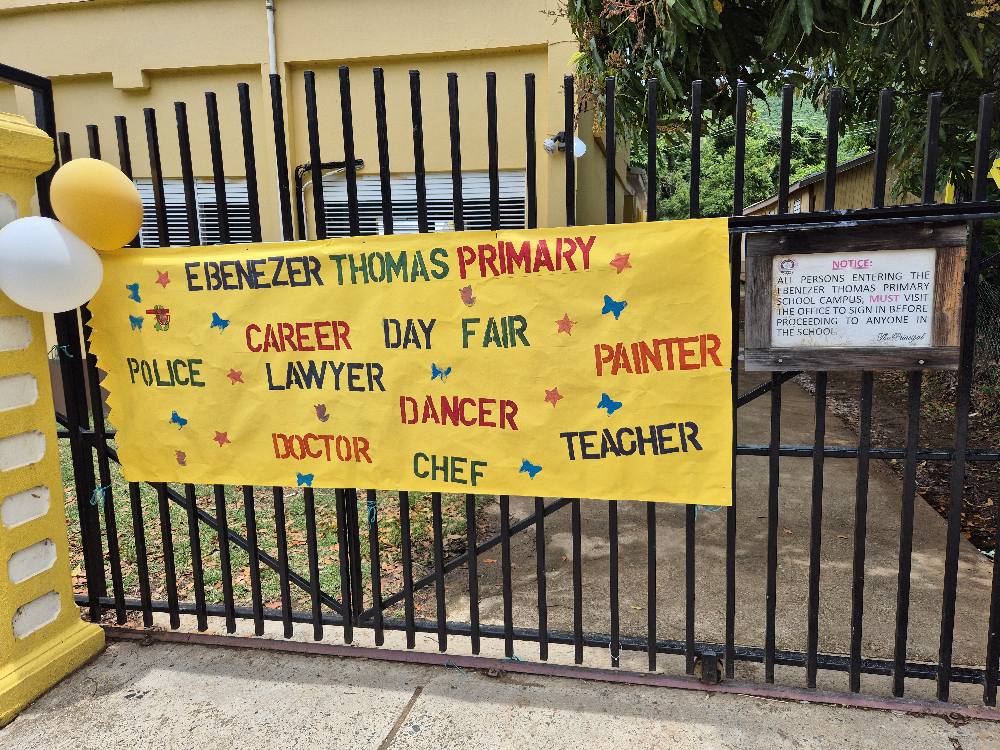 EBENEZER THOMAS PRIMARY
CAREER DAY FAIR
PAINTER
POLICE LAWYER
DANCER
DOCTOR
TEACHER
CHEF
NOTICE:
ALL PERSONS ENTERING THE
EBENEZER THOMAS PRIMARY
SCHOOL CAMPUS, MUST VISIT
THE OFFICE TO SIGN IN BEFORE
PROCEEDING TO ANYONE IN
THE SCHOOL.
The Principal